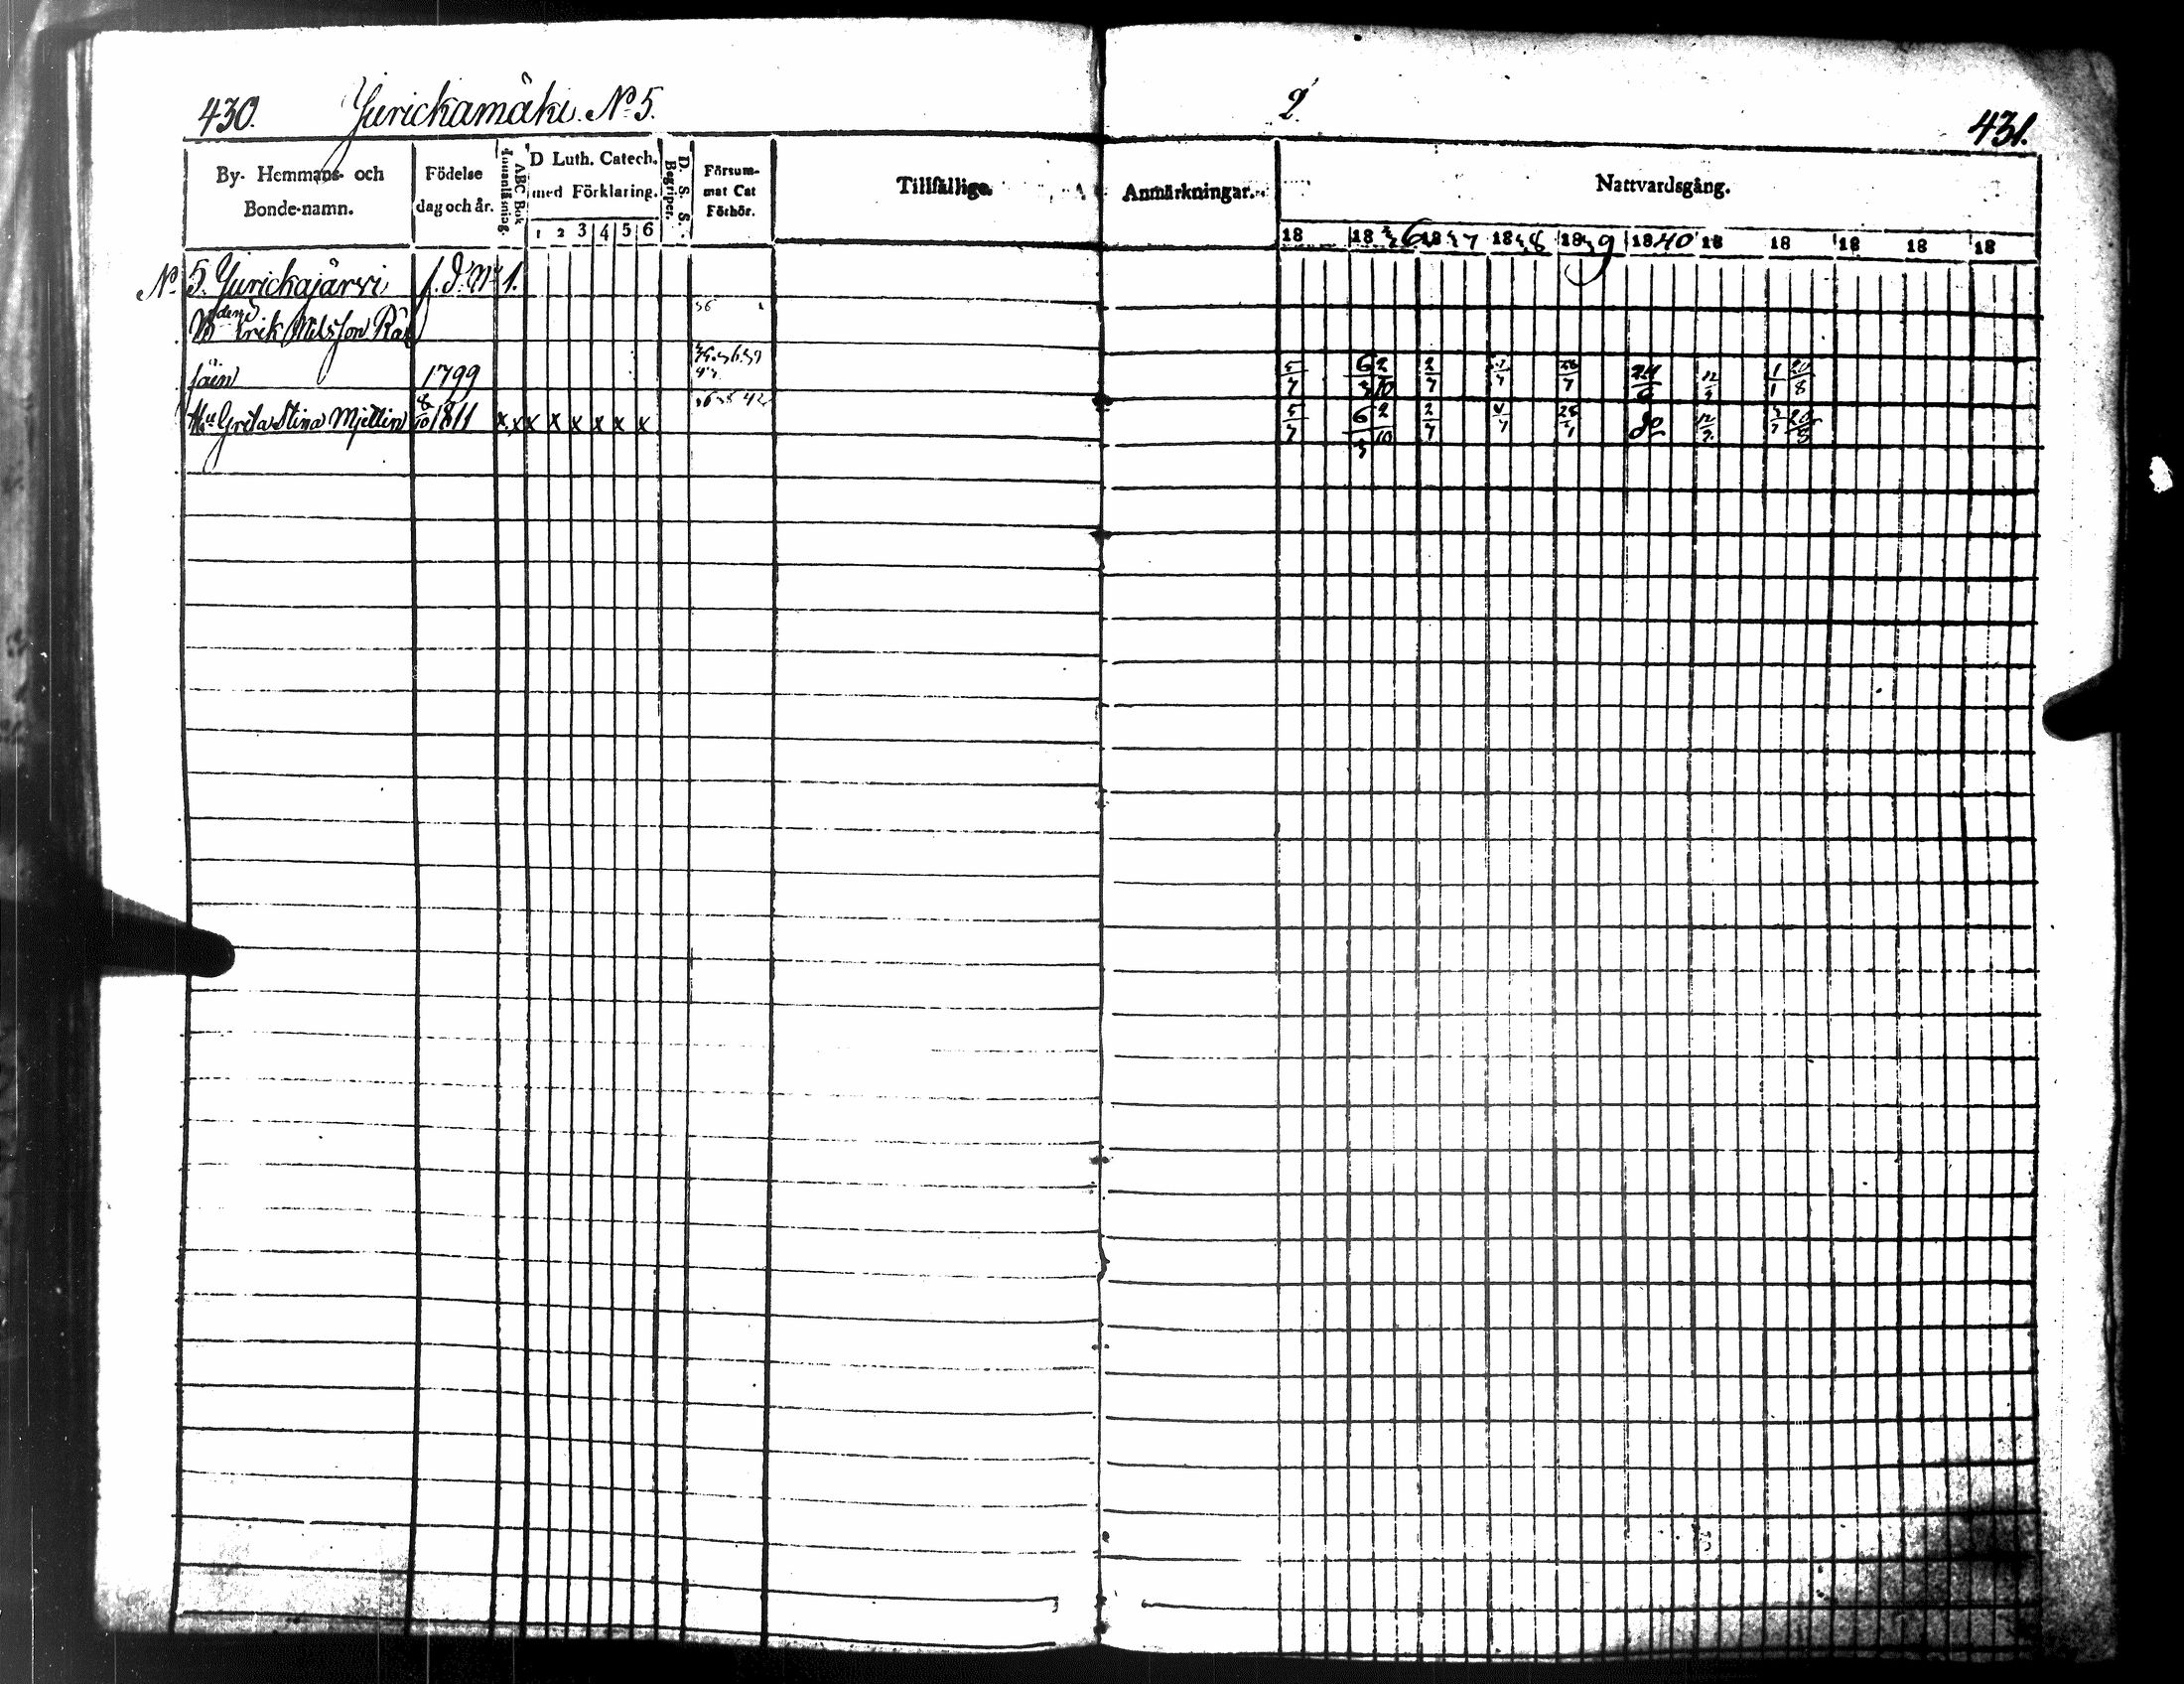 430. Jurickamäki. No 5. 2 431.
By- Hemmans- och Bonde-namn.
Födelse dag och år.
ABC Bok
Innanläsning.
D Luth. Catech. med Förklaring.
1 2 3 4 5 6
D. S. S. Begriper.
Försum- mat Cat Förhör.
Tillfällige Anmärkningar.
Nattvardsgång.
18 18 36 18 37 18 38 18 39 1840 18 18 18 18 18
No 5. Jurickajärvi f. d. No 1.
Erik Nilsson Rä
säin 1799 5/7 6/3 2/10 2/7 28/7 24/6 12/9 1/1 20/8
Hu Greta Stina Mjettin 8/10 1811 x x x x x x x x 5/7 6/3 2/10 2/7 4/7 28/7 do 12/9 20/8